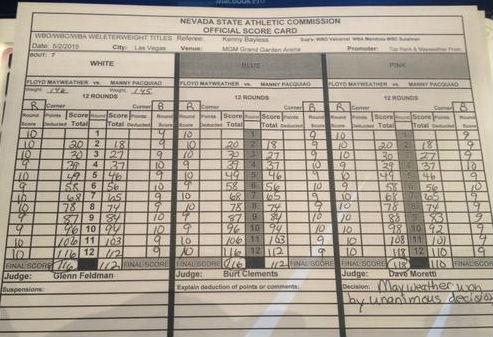 NEVADA STATE ATHLETIC COMMISSION
OFFICIAL SCORE CARD
WBO/WBC/WBA WELTERWEIGHT TITLES Referee: Kenny Bayless
Date: 5/2/2015 City: Las Vegas Venue: MGM Grand Garden Arena Promoter: Top Rank & Mayweather Prom.
BOUT: 7
WHITE BLUE PINK
FLOYD MAYWEATHER vs. MANNY PACQUIAO FLOYD MAYWEATHER vs. MANNY PACQUIAO FLOYD MAYWEATHER vs. MANNY PACQUIAO
Weight: 146 Weight: 145
12 ROUNDS 12 ROUNDS 12 ROUNDS
R Corner Corner B R Corner Corner B R Corner Corner B
Round Points Score Round Score Points Round Round Points Score Round Score Points Round Round Points Score Round Score Points Round
Score Deducted Total Total Deducted Score Score Deducted Total Total Deducted Score Score Deducted Total Total Deducted Score
10 1 9 10 1 9 10 1 9
10 20 2 18 9 10 20 2 18 9 10 20 2 18 9
10 30 3 27 9 10 30 3 27 9 10 30 3 27 9
9 39 4 37 10 9 39 4 37 10 9 39 4 37 10
10 49 5 46 9 10 49 5 46 9 10 49 5 46 9
9 58 6 56 10 9 58 6 56 10 9 58 6 56 10
10 68 7 65 9 10 68 7 65 9 10 68 7 65 9
10 78 8 74 9 10 78 8 74 9 10 78 8 74 9
9 87 9 84 10 9 87 9 84 10 10 88 9 83 9
9 96 10 94 10 9 96 10 94 10 10 98 10 92 9
10 106 11 103 9 10 106 11 103 9 10 108 11 101 9
10 116 12 112 9 10 116 12 112 9 10 118 12 110 9
FINAL SCORE 116 112 FINAL SCORE FINAL SCORE 116 112 FINAL SCORE FINAL SCORE 118 110 FINAL SCORE
Judge: Glenn Feldman Judge: Burt Clements Judge: Dave Moretti
Suspensions: Explain deduction of points or comments: Decision: Mayweather won
by unanimous decision